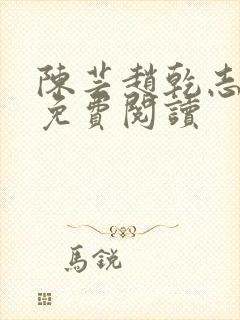 陳芸趙乾志
免費閱讀
馬銳